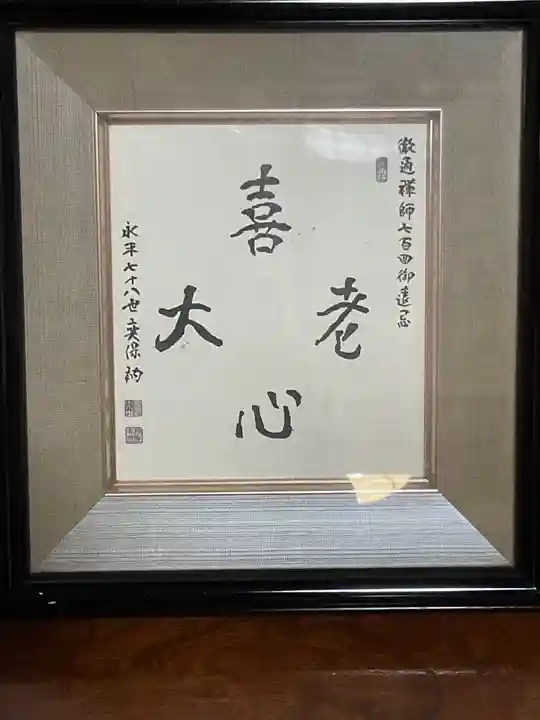 徹通禅師七百回御遠忌
喜
老
大
心
永平七十八世英保衲